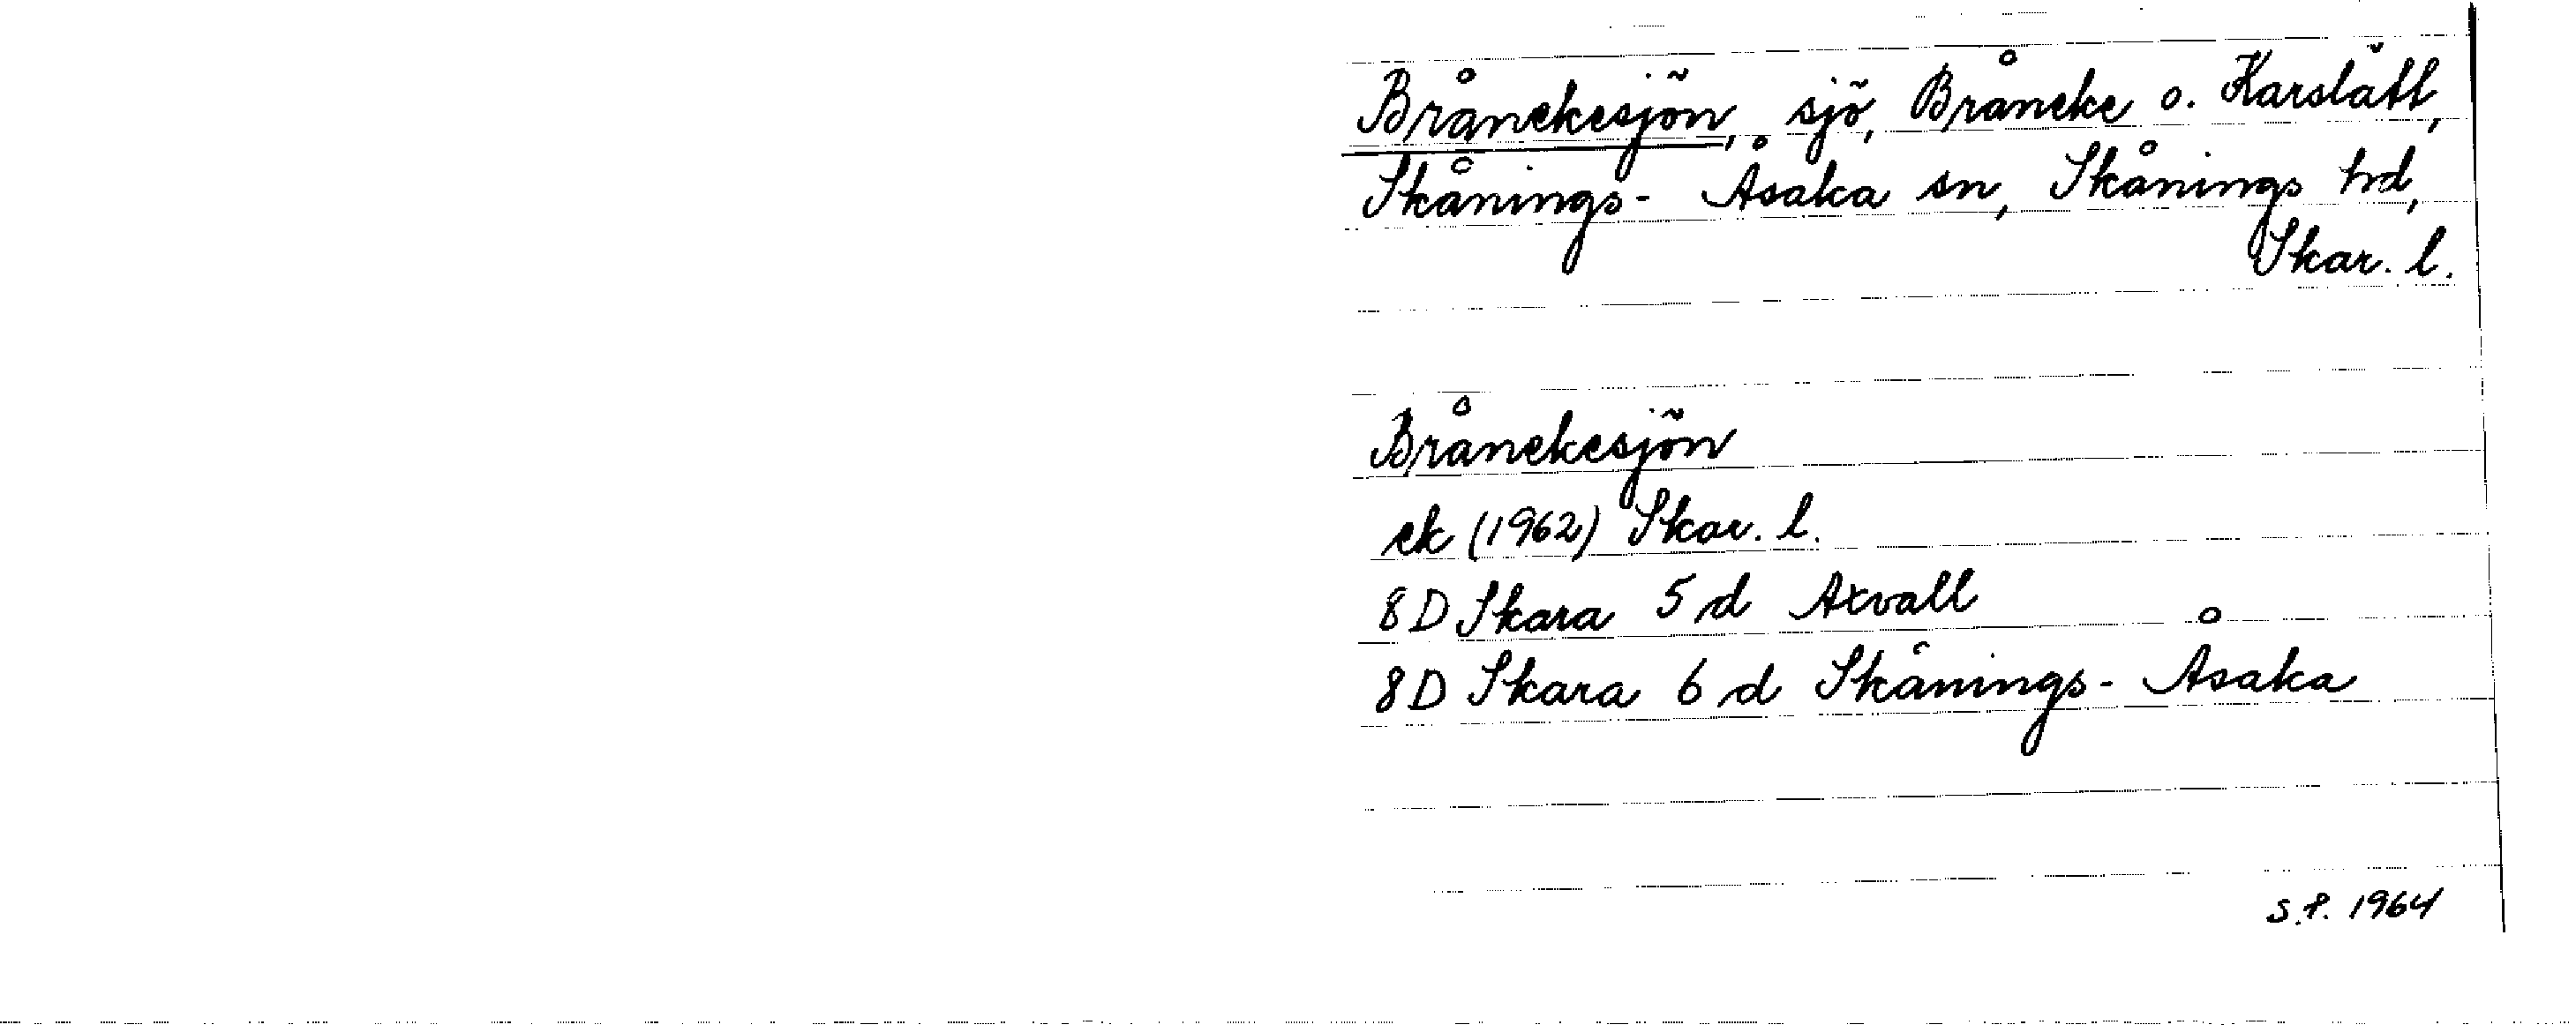 Brånekesjön, sjö, Bråneke o. Karslätt,
Skånings- Åsaka sn, Skånings hd,
Skar. l.
Brånekesjön
ek (1962) Skar. l.
8D Skara 5 d Axvall
8D Skara 6 d Skånings- Åsaka
S.P. 1964